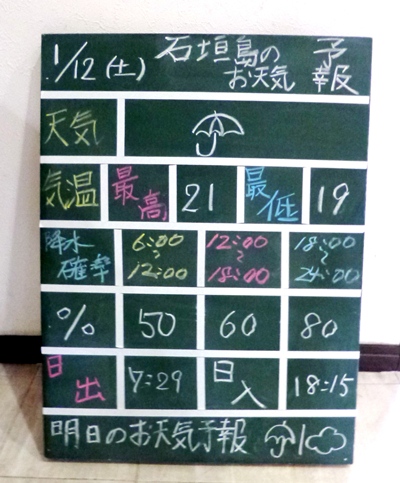 1/12(土) 石垣島のお天気 予報
天気 ☂
気温 最高 21 最低 19
降水確率 6:00~12:00 12:00~18:00 18:00~24:00
% 50 60 80
日出 7:29 日入 18:15
明日のお天気予報 ☂/☁